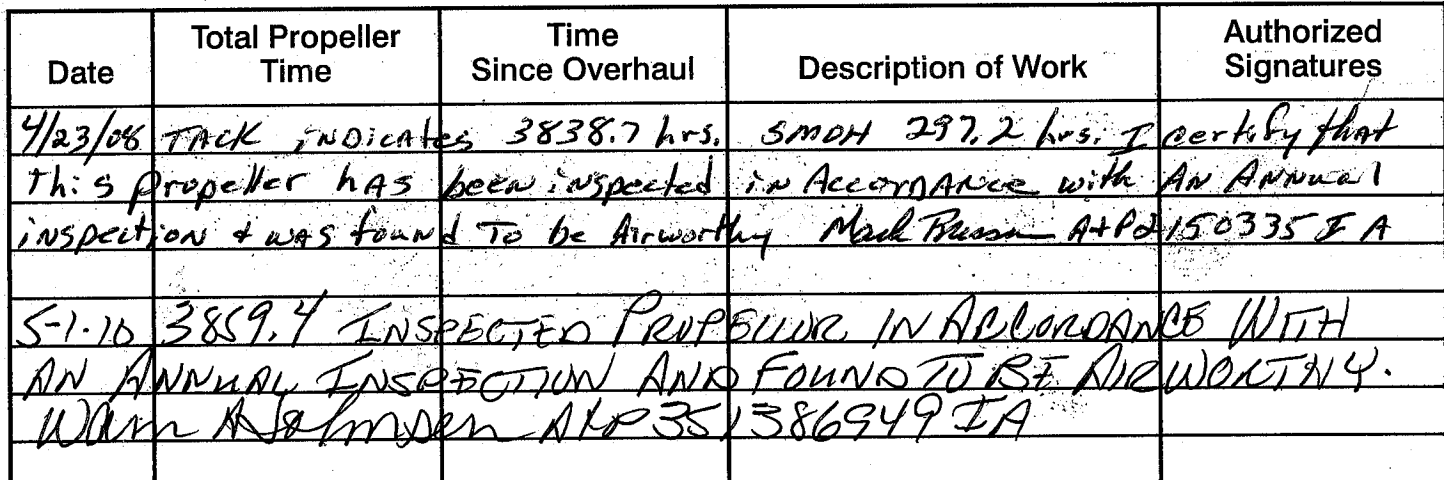 Date Total Propeller Time Time Since Overhaul Description of Work Authorized Signatures
4/23/08 TACK iNDicAtes 3838.7 hrs. SMOH 297.2 hrs. I certify that
This propeller hAS been inspected in AccorDANce with AN ANNual
inspection + was found To be Airworthy Mark A+P 2150335 I A
5-1-10 3859.4 INSPECTED PROPELLOR IN ACCORDANCE WITH
AN ANNUAL INSPECTION AND FOUND TO BE AIRWORTHY.
A&P 351386949 IA